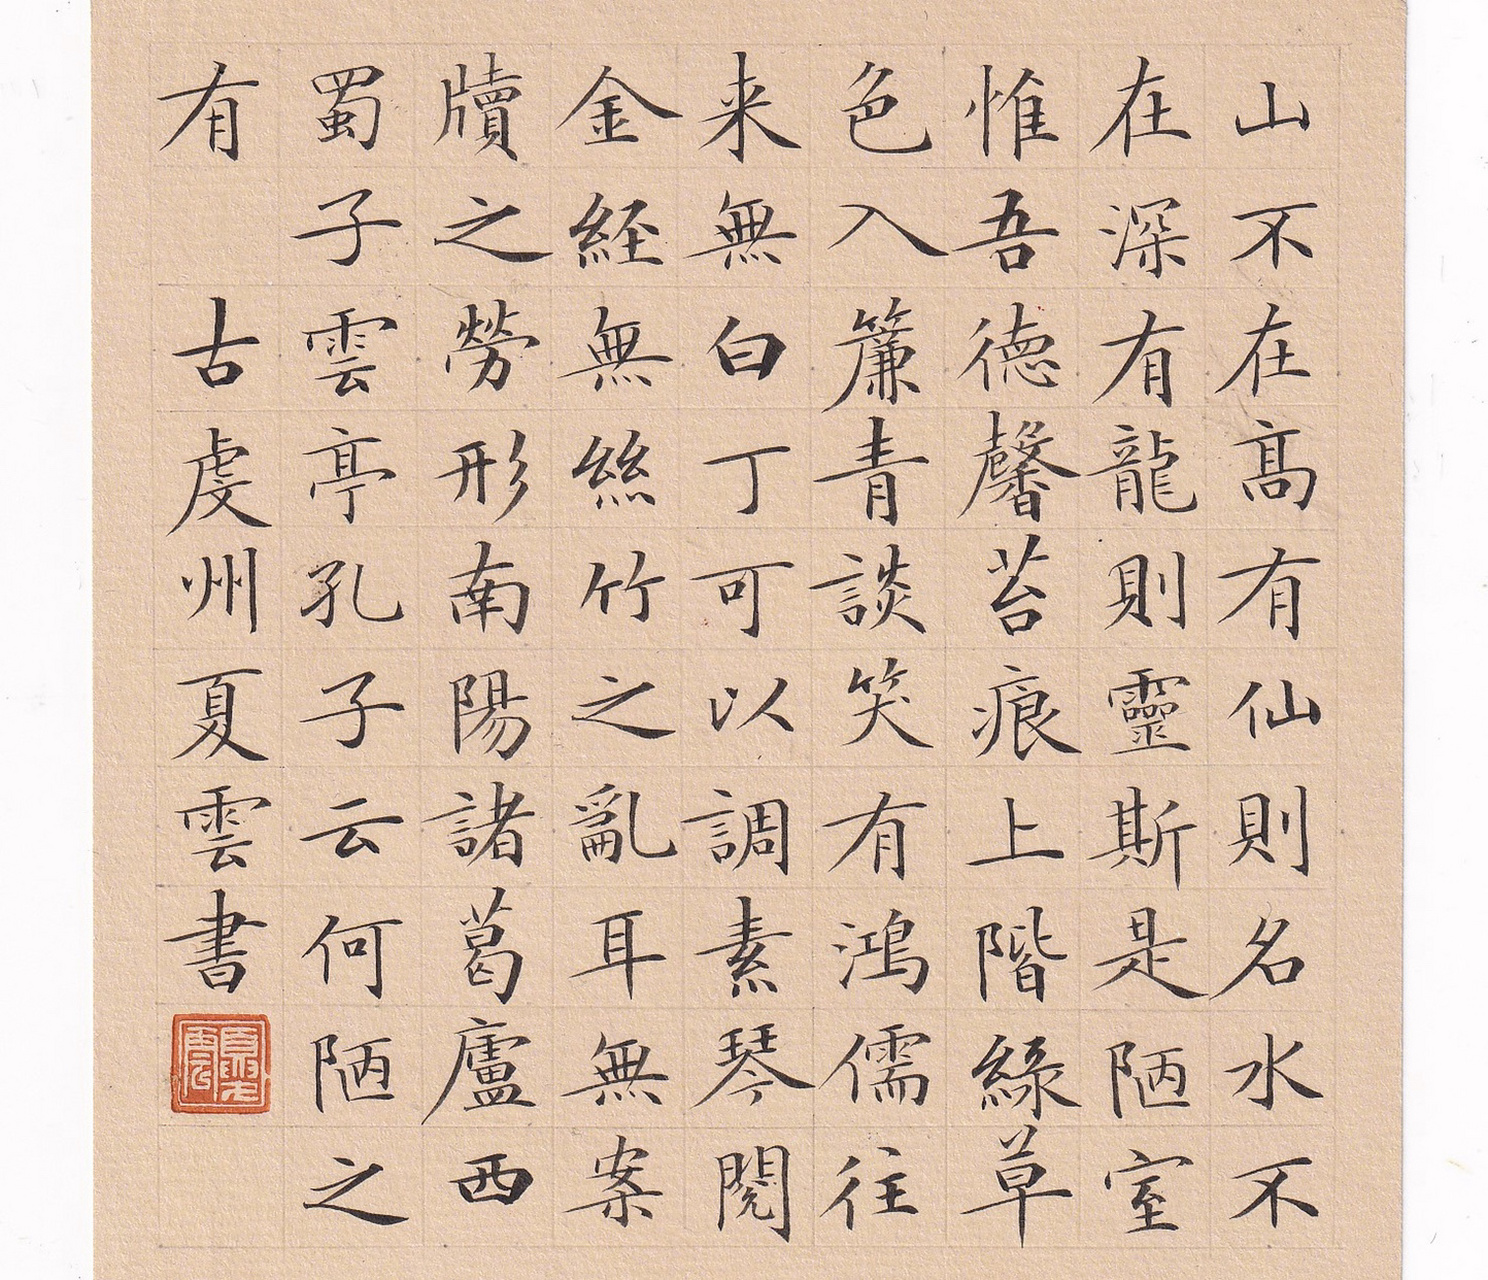 山不在高有仙則名水不
在深有龍則靈斯是陋室
惟吾德馨苔痕上階綠草
色入簾青談笑有鴻儒往
来無白丁可以調素琴閱
金經無絲竹之亂耳無案
牘之勞形南陽諸葛廬西
蜀子雲亭孔子云何陋之
有 古虔州夏雲書